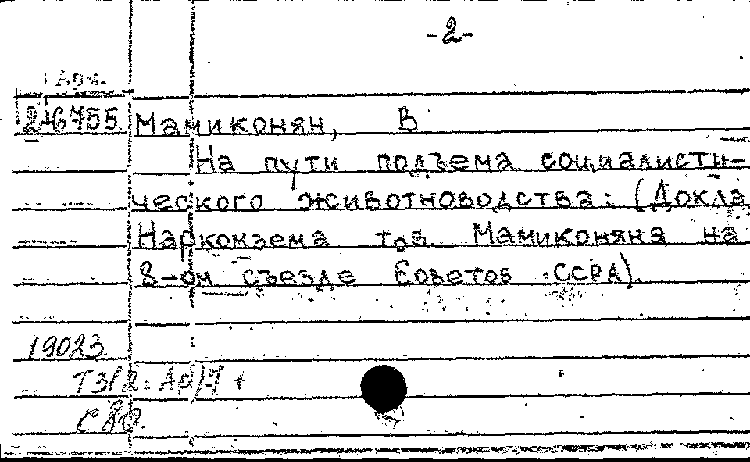 -2-
Арм.
246755 Мамиконян, В
На пути подъема социалисти-
ческого животноводства: (Докла
Наркомзема тов. Мамиконяна на
8-ом съезде Советов ССРА).
19023